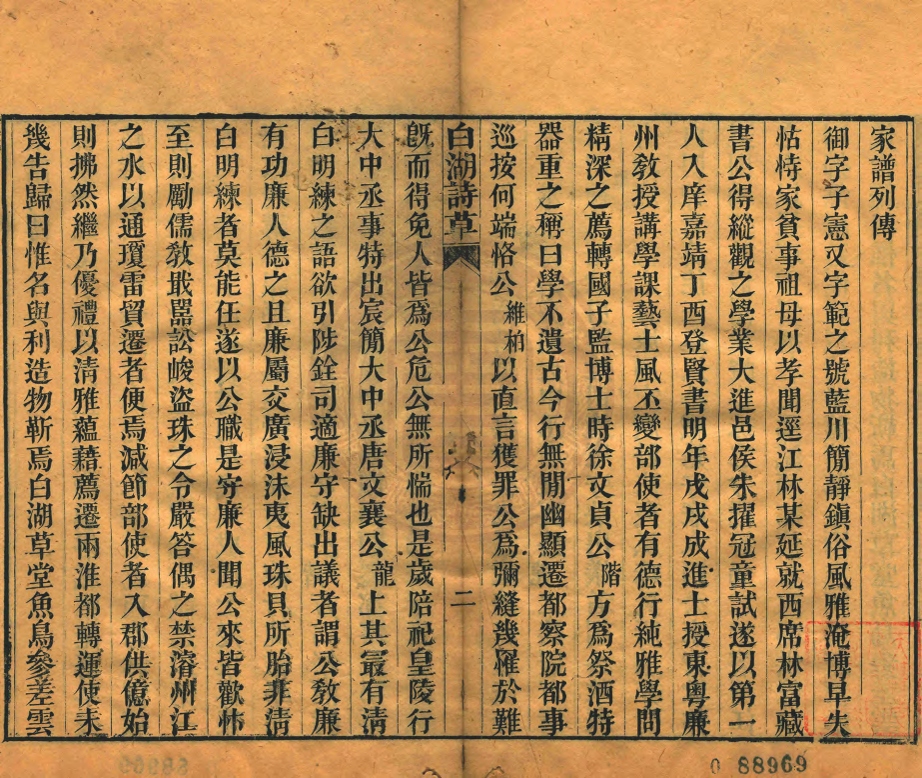 家譜列傳
御字子憲又字範之號藍川簡靜鎮俗風雅淹博早失
怙恃家貧事祖母以孝聞逕江林某延就西席林富藏
書公得縱觀之學業大進邑侯朱擢冠童試遂以第一
人入庠嘉靖丁酉登賢書明年戊戌成進士授東粵廉
州敎授講學課藝士風丕變部使者有德行純雅學問
精深之薦轉國子監博士時徐文貞公階方爲祭酒特
器重之稱曰學不遺古今行無閒幽顯遷都察院都事
巡按何端恪公維柏以直言獲罪公爲彌縫幾罹於難
白湖詩草
二
旣而得免人皆爲公危公無所惴也是歲陪祀皇陵行
大中丞事特出宸簡大中丞唐文襄公龍上其最有淸
白明練之語欲引陟銓司適廉守缺出議者謂公敎廉
有功廉人德之且廉屬交廣浸沬夷風珠貝所胎非淸
白明練者莫能任遂以公職是守廉人聞公來皆歡怵
至則勵儒敎戢嚚訟峻盜珠之令嚴答偶之禁濬州江
之水以通瓊雷貿遷者便焉減節部使者入郡供億始
則拂然繼乃優禮以清雅蘊藉薦遷兩淮都轉運使未
幾告歸曰惟名與利造物靳焉白湖草堂魚鳥參差雲
0 88969